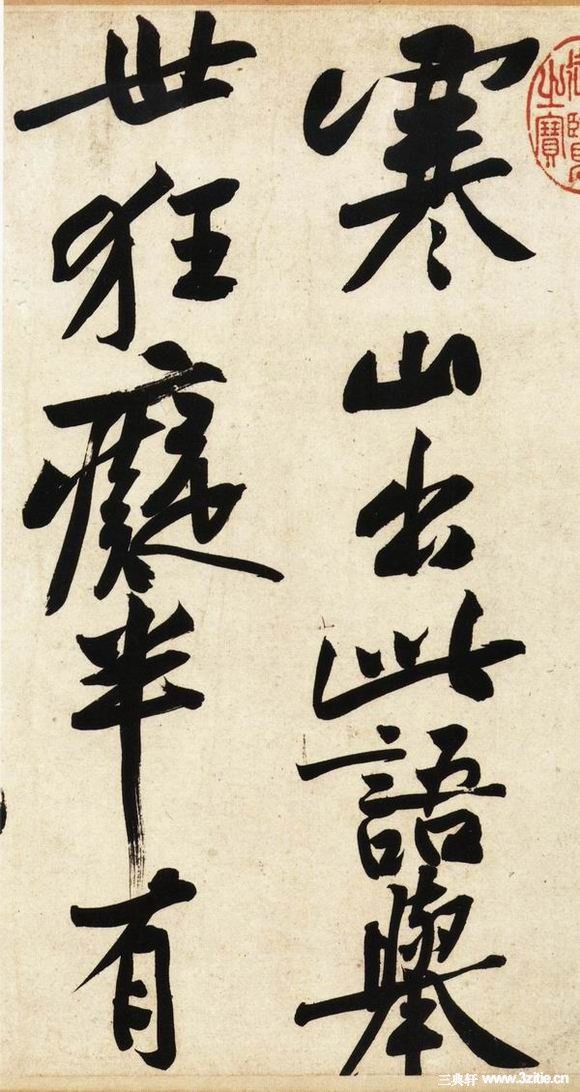 寒山出此語舉
世狂癡半有
之寶
三典轩 www.3zitie.cn